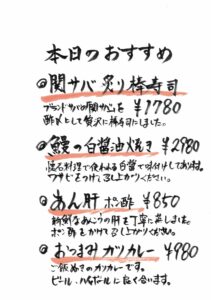 本日のおすすめ
◎関サバ炙り棒寿司
ブランドサバの関サバを ¥1780
酢〆として贅沢に棒寿司にしました。
◎鰻の白醤油焼き ¥2980
懐石料理で使われる白醤油で味付けしてあります。
ワサビをつけて召し上がりください。
◎あん肝ポン酢 ¥850
新鮮なあんこうの肝を丁寧に蒸しました。
ポン酢をかけて召し上がりください。
◎おつまみカツカレー ¥980
ご飯ぬきのカツカレーです。
ビール・ハイボールに良く合います。